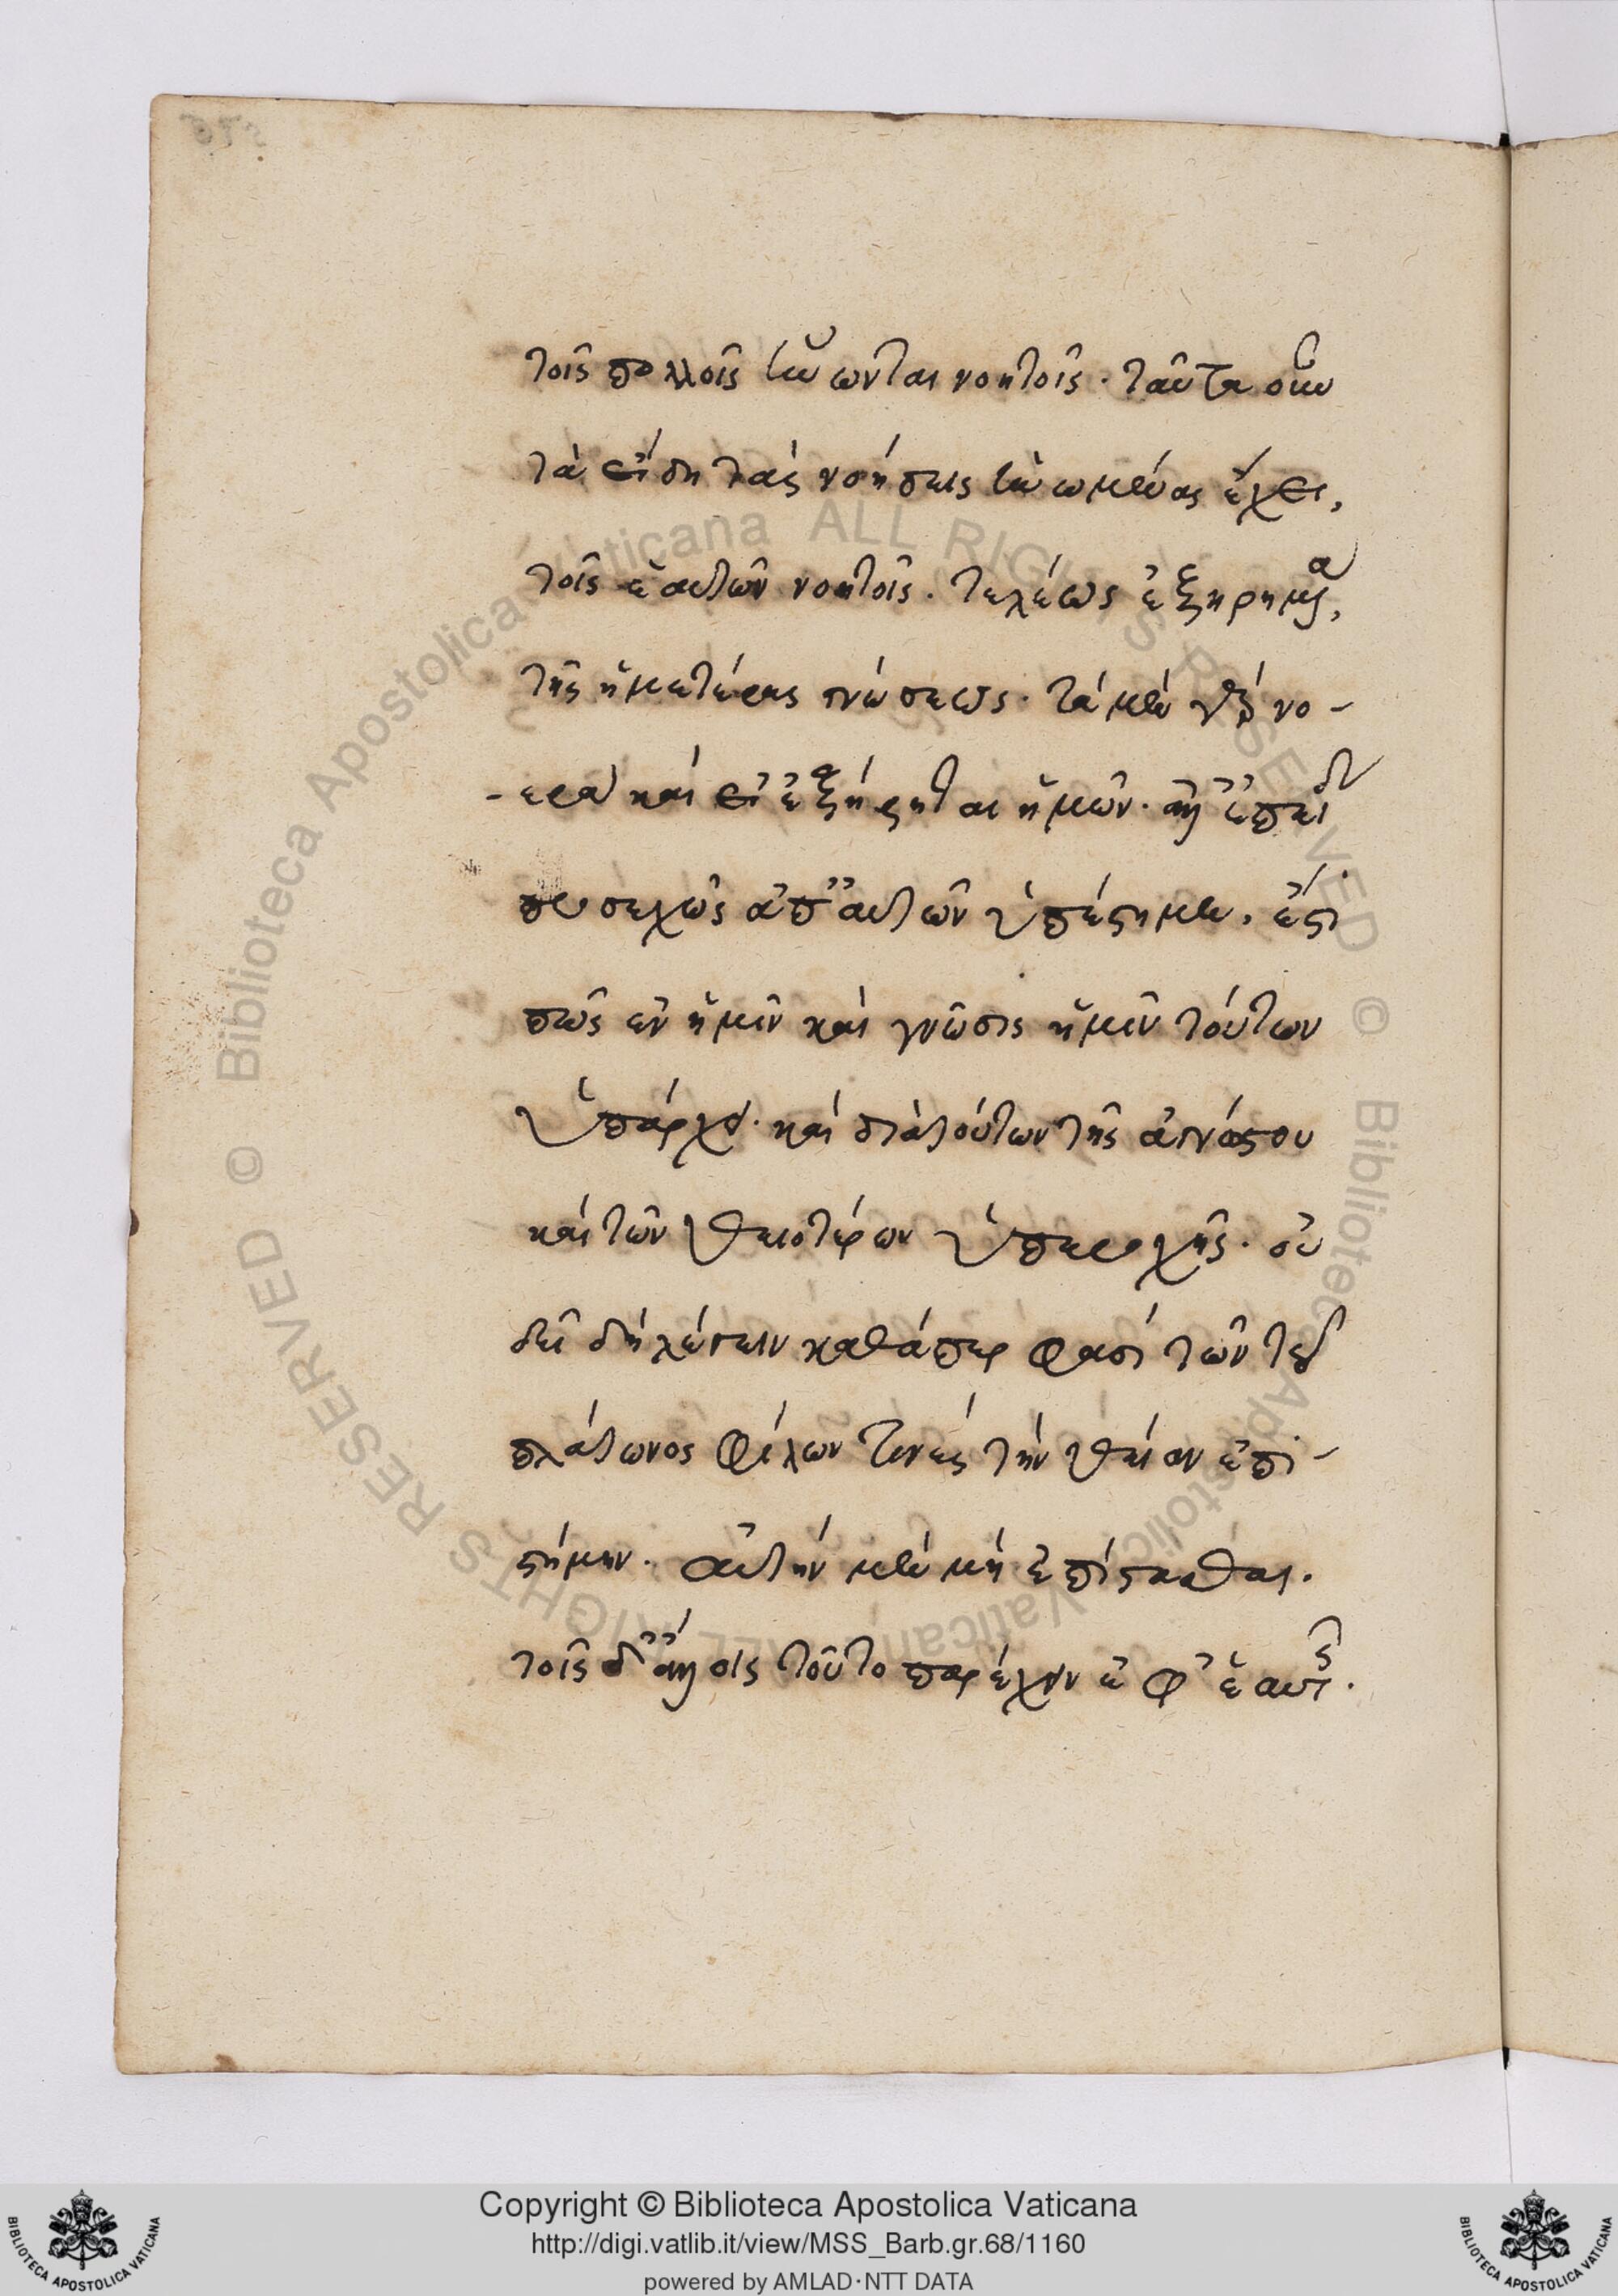 τοῖς πολλοῖς ἥνωνται νοητοῖς· ταῦτα οὖν
τὰ εἴδη τὰς νοήσεις ἡνωμένας ἔχει,
τοῖς ἑαυτῶν νοητοῖς. τελέως ἐξηρημένα,
τῆς ἡμετέρας γνώσεως· τὰ μὲν γὰρ νο-
-ερὰ καὶ εἰ ἐξήρηται ἡμῶν· ἀλλ' ἐπειδὴ
προσεχῶς ἀπ' αὐτῶν ὑπέστημεν, ἔστι
πῶς ἐν ἡμῖν καὶ γνῶσις ἡμῖν τούτων
ὑπάρχει· καὶ διὰ τούτων τῆς ἀγνώστου
καὶ τῶν θειοτέρων ὑπεροχῆς· οὐ
δεῖ δὴ λέγειν καθάπερ φασὶ τῶν τοῦ
πλάτωνος φίλων τινὲς τὴν θείαν ἐπι-
στήμην. αὐτὴν μὲν μὴ ἐπίστασθαι.
τοῖς δ' ἄλλοις τοῦτο παρέχειν ἐφ' ἑαυτῆς.
Copyright © Biblioteca Apostolica Vaticana
http://digi.vatlib.it/view/MSS_Barb.gr.68/1160
powered by AMLAD·NTT DATA
BIBLIOTECA APOSTOLICA VATICANA
BIBLIOTECA APOSTOLICA VATICANA
© Biblioteca Apostolica Vaticana ALL RIGHTS RESERVED © Biblioteca Apostolica Vaticana ALL RIGHTS RESERVED